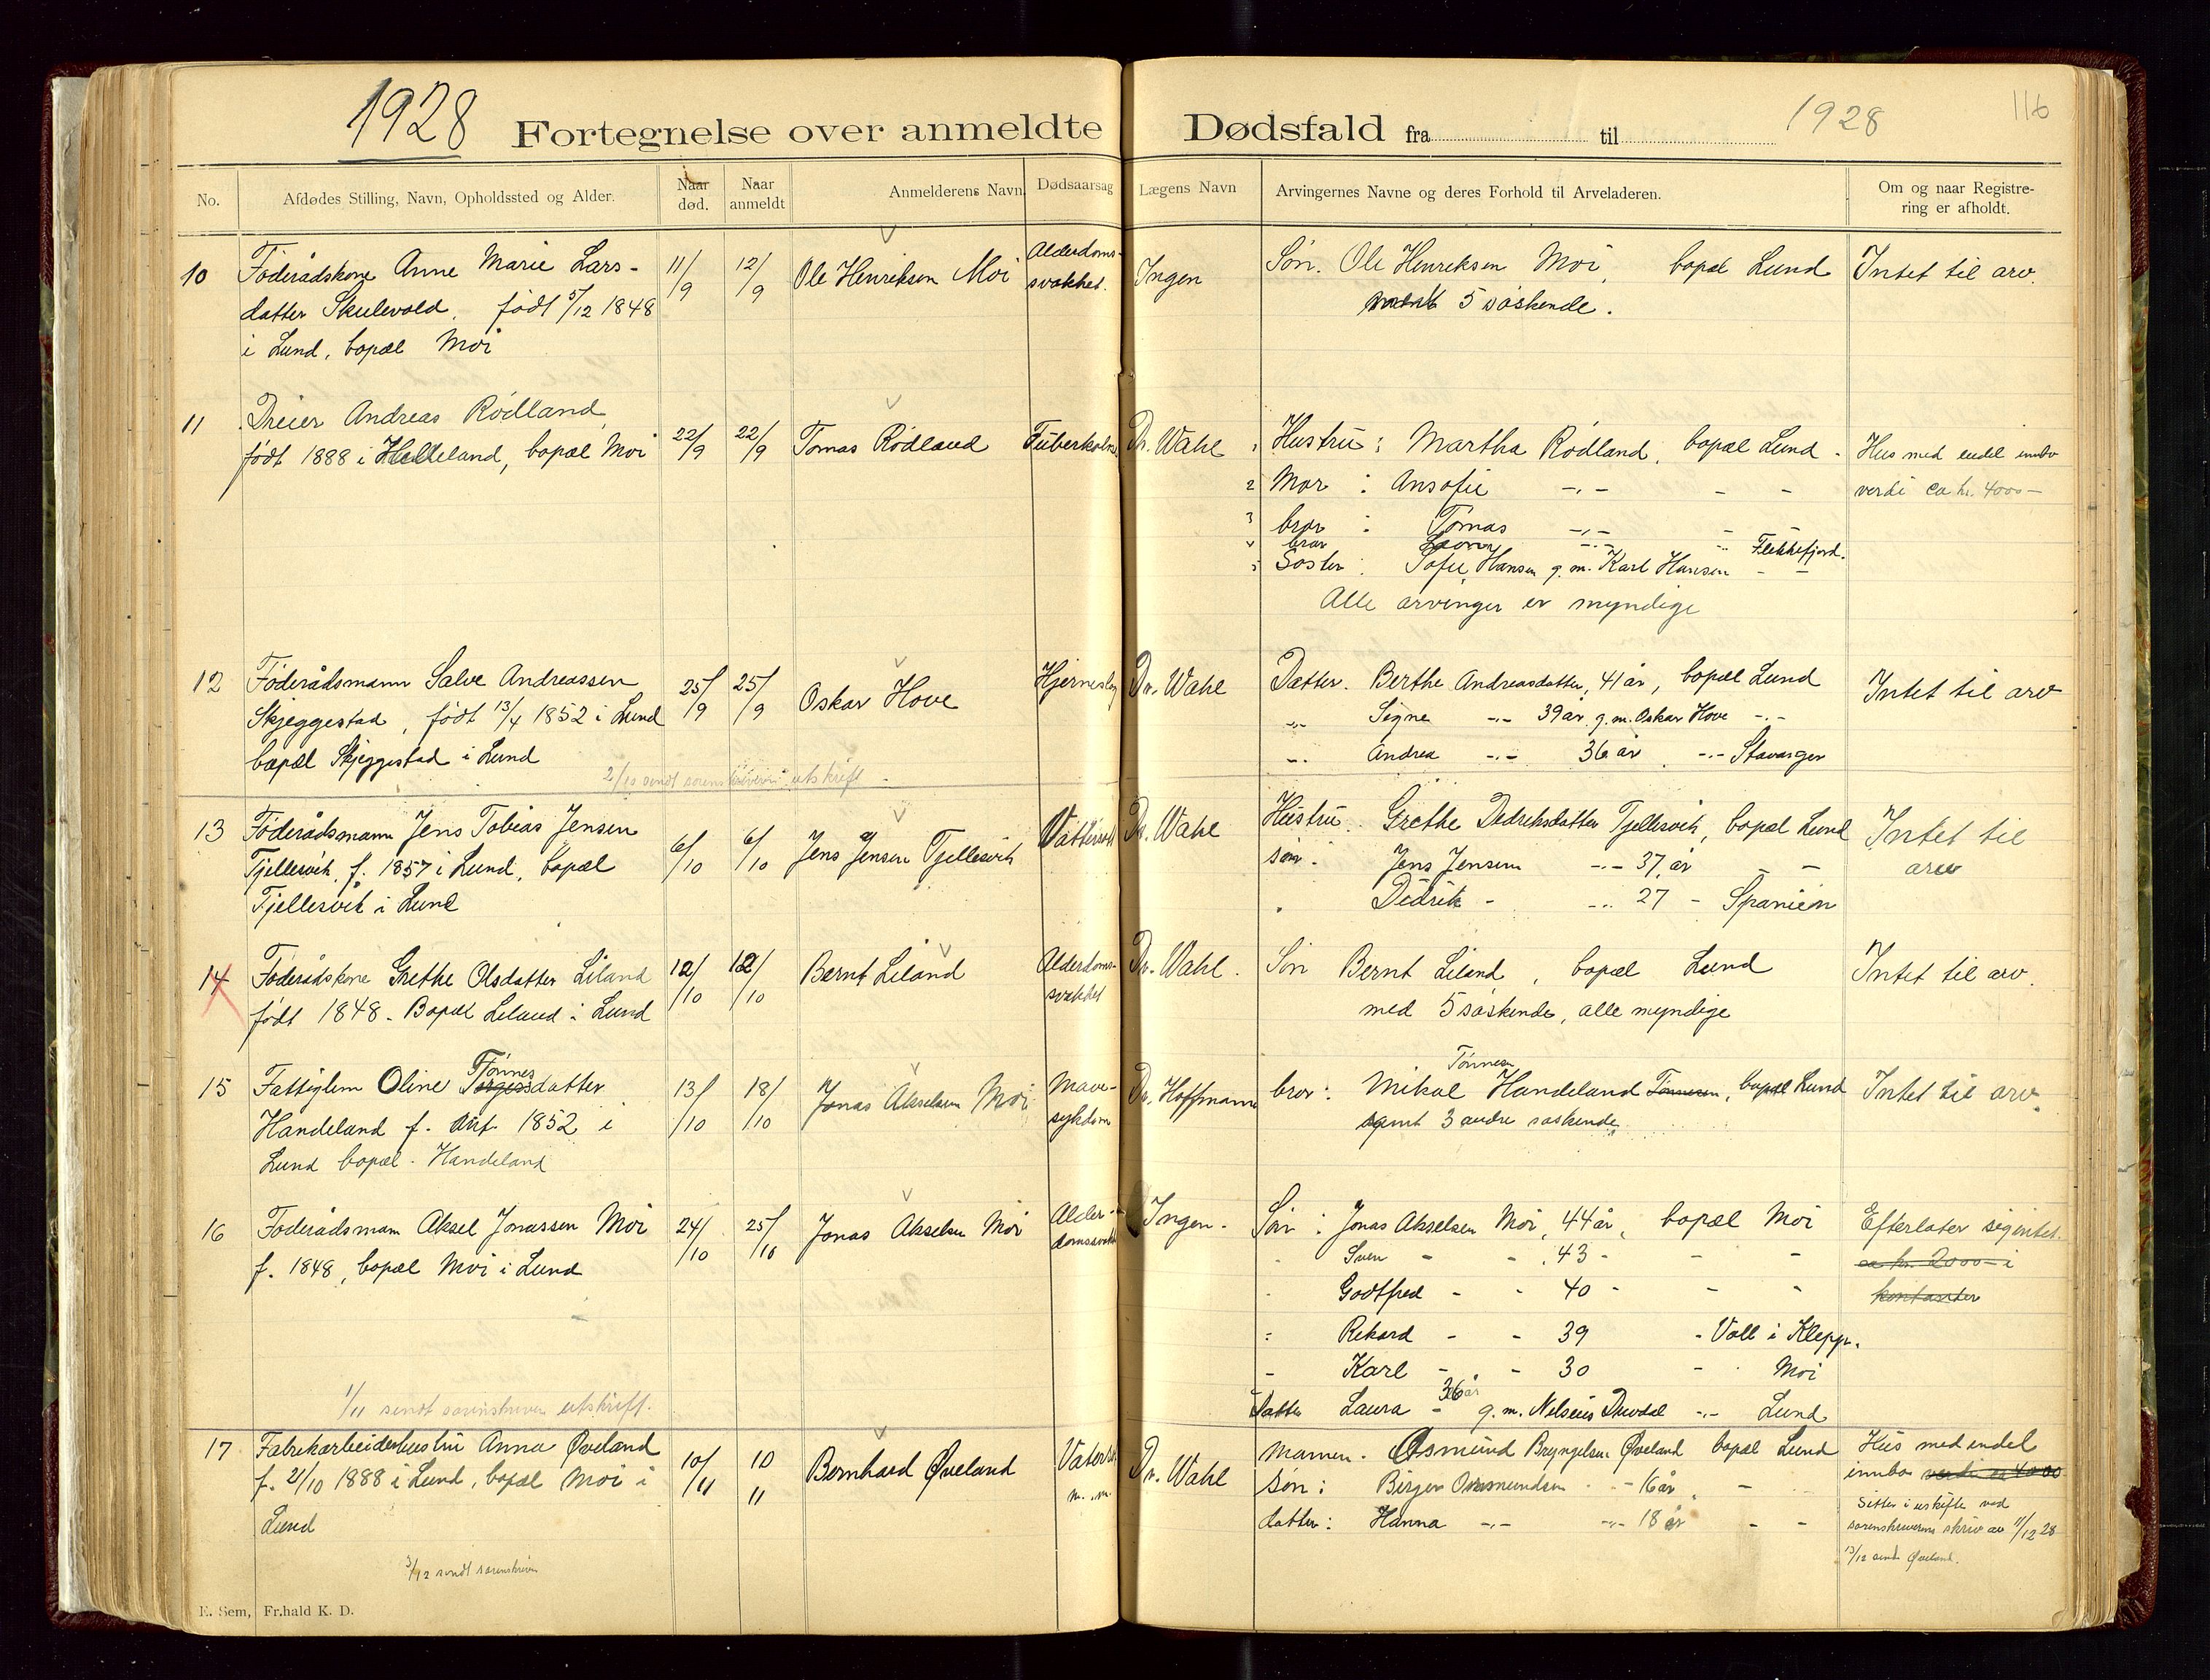 1928
Fortegnelse over anmeldte Dødsfald fra til
1928
116
No.
Afdødes Stilling, Navn, Opholdssted og Alder.
Naar død.
Naar anmeldt
Anmelderens Navn
Dødsaarsag
Lægens Navn
Arvingernes Navne og deres Forhold til Arveladeren.
Om og naar Registrering er afholdt.
10 Føderådskone Anne Marie Lars- 11/9 12/9 Ole Henriksen Moi Alderdoms- Ingen Søn. Ole Henriksen Moi, bopæl Lund Intet til arv.
datter Skulevold, født 5/12 1848 svakhet. 5 søskende.
i Lund, bopæl Moi
11 Dreier Andreas Rödland, 22/9 22/9 Tomas Rödland Tuberkulose Dr. Wahl 1 Hustru: Martha Rödland, bopæl Lund - Hus med endel innbo
født 1888 i Helleland, bopæl Moi 2 Mor : Ansofie -,- - - verdi ca kr. 4000 -
3 bror : Tomas -,- -
4 bror -,- Flekkefjord.
5 Søster : Sofie Hansen g.m. Karl Hansen - -
Alle arvinger er myndige
12 Føderådsmann Salve Andreassen 25/9 25/9 Oskar Hove Hjerneslag Dr. Wahl Datter. Berthe Andreasdatter, 41 år, bopæl Lund Intet til arv
Skjeggestad, født 13/4 1852 i Lund -,- Signe -,- 39 år g.m. Oskar Hove -,-
bopæl Skjeggestad i Lund -,- Andrea -,- 36 år -,- Stavanger
2/10 sendt sorenskriveren utskrift -
13 Føderådsmann Jens Tobias Jensen 6/10 6/10 Jens Jensen Tjellesvik Dr. Wahl Hustru. Grethe Didriksdatter Tjellesvik, bopæl Lund Intet til
Tjellesvik, f. 1857 i Lund, bopæl søn - Jens Jensen -,- 37 år - - arv
Tjellesvik i Lund Didrik - -,- 27 - Spanien
14 Føderådskone Grethe Olsdatter Liland 12/10 12/10 Bernt Liland Alderdoms- Dr. Wahl. Søn Bernt Liland, bopæl Lund Intet til arv.
født 1848 - Bopæl Leland i Lund svakhet med 5 søskende, alle myndige
15 Fattiglem Oline Tønnesdatter 13/10 18/10 Jonas Akselsen Moi Mave- Dr. Hoffmann bror: Mikal Tønnesen Handeland Tønnesen, bopæl Lund Intet til arv.
Handeland f. 1852 i sykdom samt 3 andre søskende
Lund bopæl. Handeland
16 Føderådsmann Aksel Jonassen Moi 24/10 25/10 Jonas Akselsen Moi Alder- Ingen. Søn : Jonas Akselsen Moi, 44 år, bopæl Moi Efterlater sig intet.
f. 1848, bopæl Moi i Lund domssvakh - Sven - - 43 - - - ca kr. 2000 - i
- Godtfred - - 40 - - - kontanter
- Rikard - - 39 - Voll i Klepp.
- Karl - - 30 - Moi
Datter Laura - 36 år g.m. Nelseus Duvdal -,- Lund
1/11 sendt sorenskriveren utskrift.
17 Fabrikarbeiderhustru Anna Øveland 10/11 10/11 Bernhard Øveland Vaters. Dr. Wahl Mannen. Osmund Bryngelsen Øveland bopæl Lund Hus med endel
f. 21/10 1888 i Lund, bopæl Moi i m.m. Søn : Birger Osmundsen - - 16 år - innbo verdi ca 4000
Lund datter: Hanna -,- -,- 18 år - - Sitter i uskifte ved
sorenskriverens skriv av 11/12 28
13/12 sendt Øveland.
3/12 sendt sorenskriver
E. Sem, Fr.hald K. D.